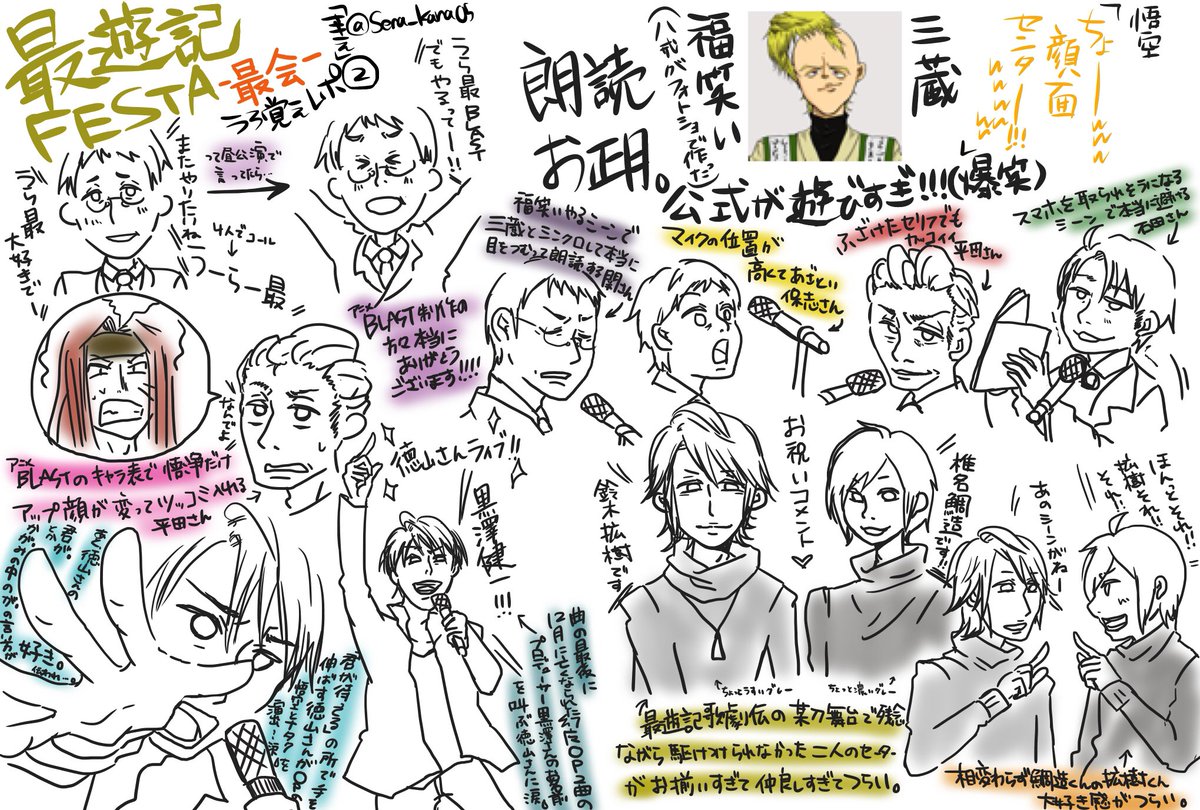 最遊記
FESTA
-最会-
うろ覚えレポ②
うら最
大好きで
またやりたいね
4人でコール
うーら最
って昼公演で
言ってたら…
うら最BLAST
でもやるってー!!
アニメ
BLAST制作の
方々本当に
ありがとう
ございます!!!!
朗読
お正月。
福笑い
(八戒がフォトショで作った)
三蔵
「悟空
ちょーーーw
顔面
センターーww!!!」
公式が遊びすぎ!!!(爆笑)
福笑いやるシーンで
三蔵とシンクロして本当に
目をつむって朗読する関さん
マイクの位置が
高くてあざとい
保志さん
ふざけたセリフでも
カッコイイ
平田さん
スマホを取られそうになる
シーンで本当に避ける
石田さん
なんでよ
アニメ
BLASTのキャラ表で悟浄だけ
アップ顔が変ってツッコミ入れる
平田さん
徳山さんライブ!!
黒澤健一!!!
あと徳山さんの
君が。
とか
かがみの中のがの言い方が
好き。
「君が待ってる」の所で手を
伸ばす徳山さんがOPの
悟空とシンクロ
曲の最後に
12月に亡くなられたうら最OP2曲の
プロデューサー黒澤さんの名前
を叫ぶ徳山さんに涙。
お祝いコメント♡
鈴木拡樹です
椎名鯛造です!!
ちょっとうすいグレー
ちょっと濃いグレー
最遊記歌劇伝の某刀舞台で残念
ながら駆けつけられなかった二人のセーター
がお揃いすぎて仲良しすぎてつらい。
あのシーンがねー
ほんっとそれ!!
拡樹くんそれ!!
相変わらず鯛造くんの拡樹くん
大好き感がつらい。